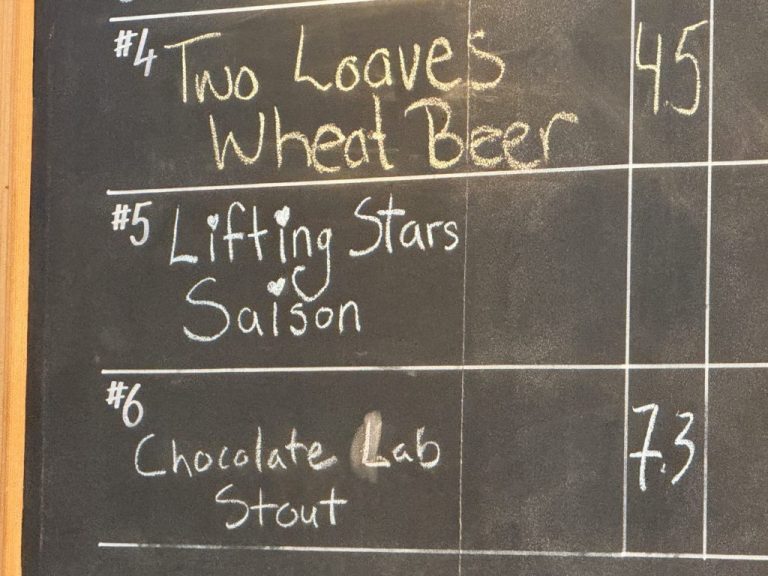 #4 Two Loaves 45
Wheat Beer
#5 Lifting Stars
Saison
#6
Chocolate Lab 7.3
Stout